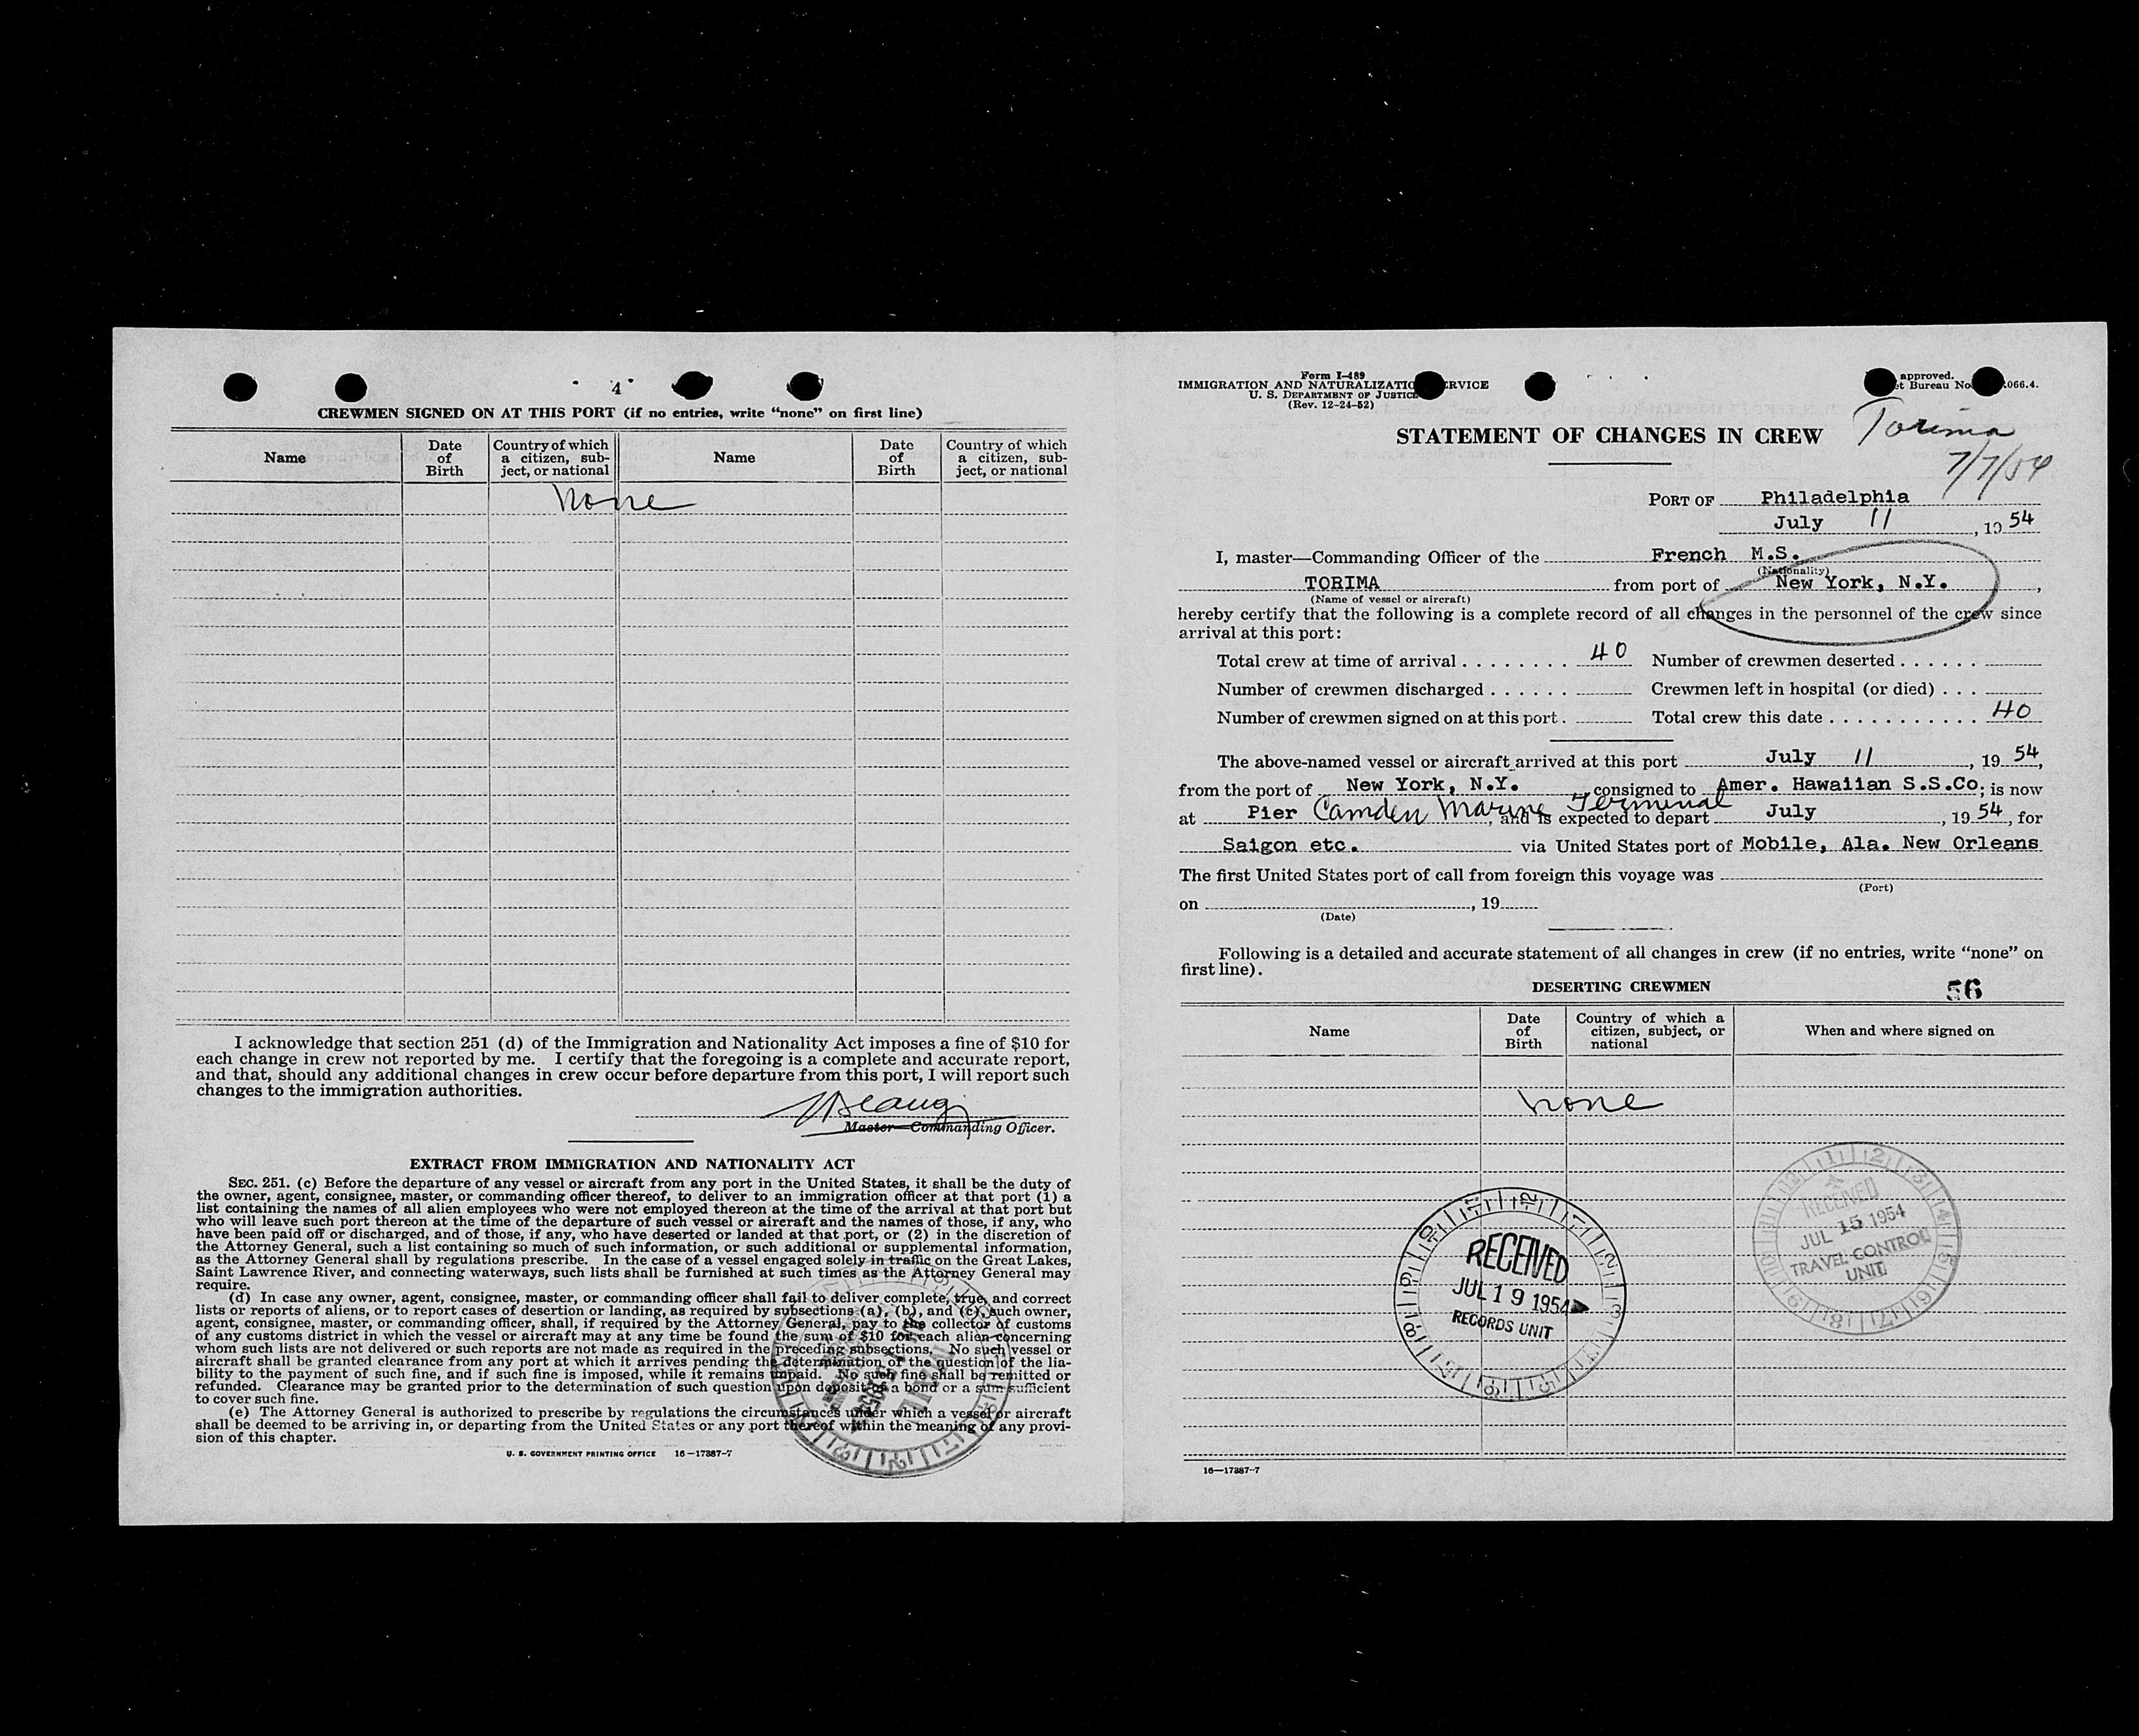 4
CREWMEN SIGNED ON AT THIS PORT (if no entries, write “none” on first line)
Name
Date of Birth
Country of which a citizen, sub-ject, or national
Name
Date of Birth
Country of which a citizen, sub-ject, or national
None
I acknowledge that section 251 (d) of the Immigration and Nationality Act imposes a fine of $10 for
each change in crew not reported by me. I certify that the foregoing is a complete and accurate report,
and that, should any additional changes in crew occur before departure from this port, I will report such
changes to the immigration authorities.
Master—Commanding Officer.
EXTRACT FROM IMMIGRATION AND NATIONALITY ACT
SEC. 251. (c) Before the departure of any vessel or aircraft from any port in the United States, it shall be the duty of
the owner, agent, consignee, master, or commanding officer thereof, to deliver to an immigration officer at that port (1) a
list containing the names of all alien employees who were not employed thereon at the time of the arrival at that port but
who will leave such port thereon at the time of the departure of such vessel or aircraft and the names of those, if any, who
have been paid off or discharged, and of those, if any, who have deserted or landed at that port, or (2) in the discretion of
the Attorney General, such a list containing so much of such information, or such additional or supplemental information,
as the Attorney General shall by regulations prescribe. In the case of a vessel engaged solely in traffic on the Great Lakes,
Saint Lawrence River, and connecting waterways, such lists shall be furnished at such times as the Attorney General may
require.
(d) In case any owner, agent, consignee, master, or commanding officer shall fail to deliver complete, true, and correct
lists or reports of aliens, or to report cases of desertion or landing, as required by subsections (a), (b), and (c), such owner,
agent, consignee, master, or commanding officer, shall, if required by the Attorney General, pay to the collector of customs
of any customs district in which the vessel or aircraft may at any time be found the sum of $10 for each alien concerning
whom such lists are not delivered or such reports are not made as required in the preceding subsections. No such vessel or
aircraft shall be granted clearance from any port at which it arrives pending the determination of the question of the lia-
bility to the payment of such fine, and if such fine is imposed, while it remains unpaid. No such fine shall be remitted or
refunded. Clearance may be granted prior to the determination of such question upon deposit of a bond or a sum sufficient
to cover such fine.
(e) The Attorney General is authorized to prescribe by regulations the circumstances under which a vessel or aircraft
shall be deemed to be arriving in, or departing from the United States or any port thereof within the meaning of any provi-
sion of this chapter.
U. S. GOVERNMENT PRINTING OFFICE 16—17387-7
Form I-489
IMMIGRATION AND NATURALIZATIO RVICE
U. S. DEPARTMENT OF JUSTICE
(Rev. 12-24-52)
approved.
t Bureau No .066.4.
STATEMENT OF CHANGES IN CREW
Torima
7/7/54
PORT OF Philadelphia
July 11, 1954
I, master—Commanding Officer of the French M.S.
(Nationality)
TORIMA from port of New York, N.Y.,
(Name of vessel or aircraft)
hereby certify that the following is a complete record of all changes in the personnel of the crew since
arrival at this port:
Total crew at time of arrival . . . . . . . . 40 Number of crewmen deserted . . . . . .
Number of crewmen discharged . . . . . . Crewmen left in hospital (or died) . . .
Number of crewmen signed on at this port . Total crew this date . . . . . . . . . . . 40
The above-named vessel or aircraft arrived at this port July 11, 1954,
from the port of New York, N.Y., consigned to Amer. Hawaiian S.S.Co; is now
at Pier Camden Marine Terminal, and is expected to depart July, 1954, for
Saigon etc. via United States port of Mobile, Ala. New Orleans
The first United States port of call from foreign this voyage was
(Port)
on , 19
(Date)
Following is a detailed and accurate statement of all changes in crew (if no entries, write “none” on
first line).
DESERTING CREWMEN
56
Name
Date of Birth
Country of which a citizen, subject, or national
When and where signed on
none
RECEIVED
JUL 15 1954
TRAVEL CONTROL
UNIT
RECEIVED
JUL 19 1954
RECORDS UNIT
16—17387-7